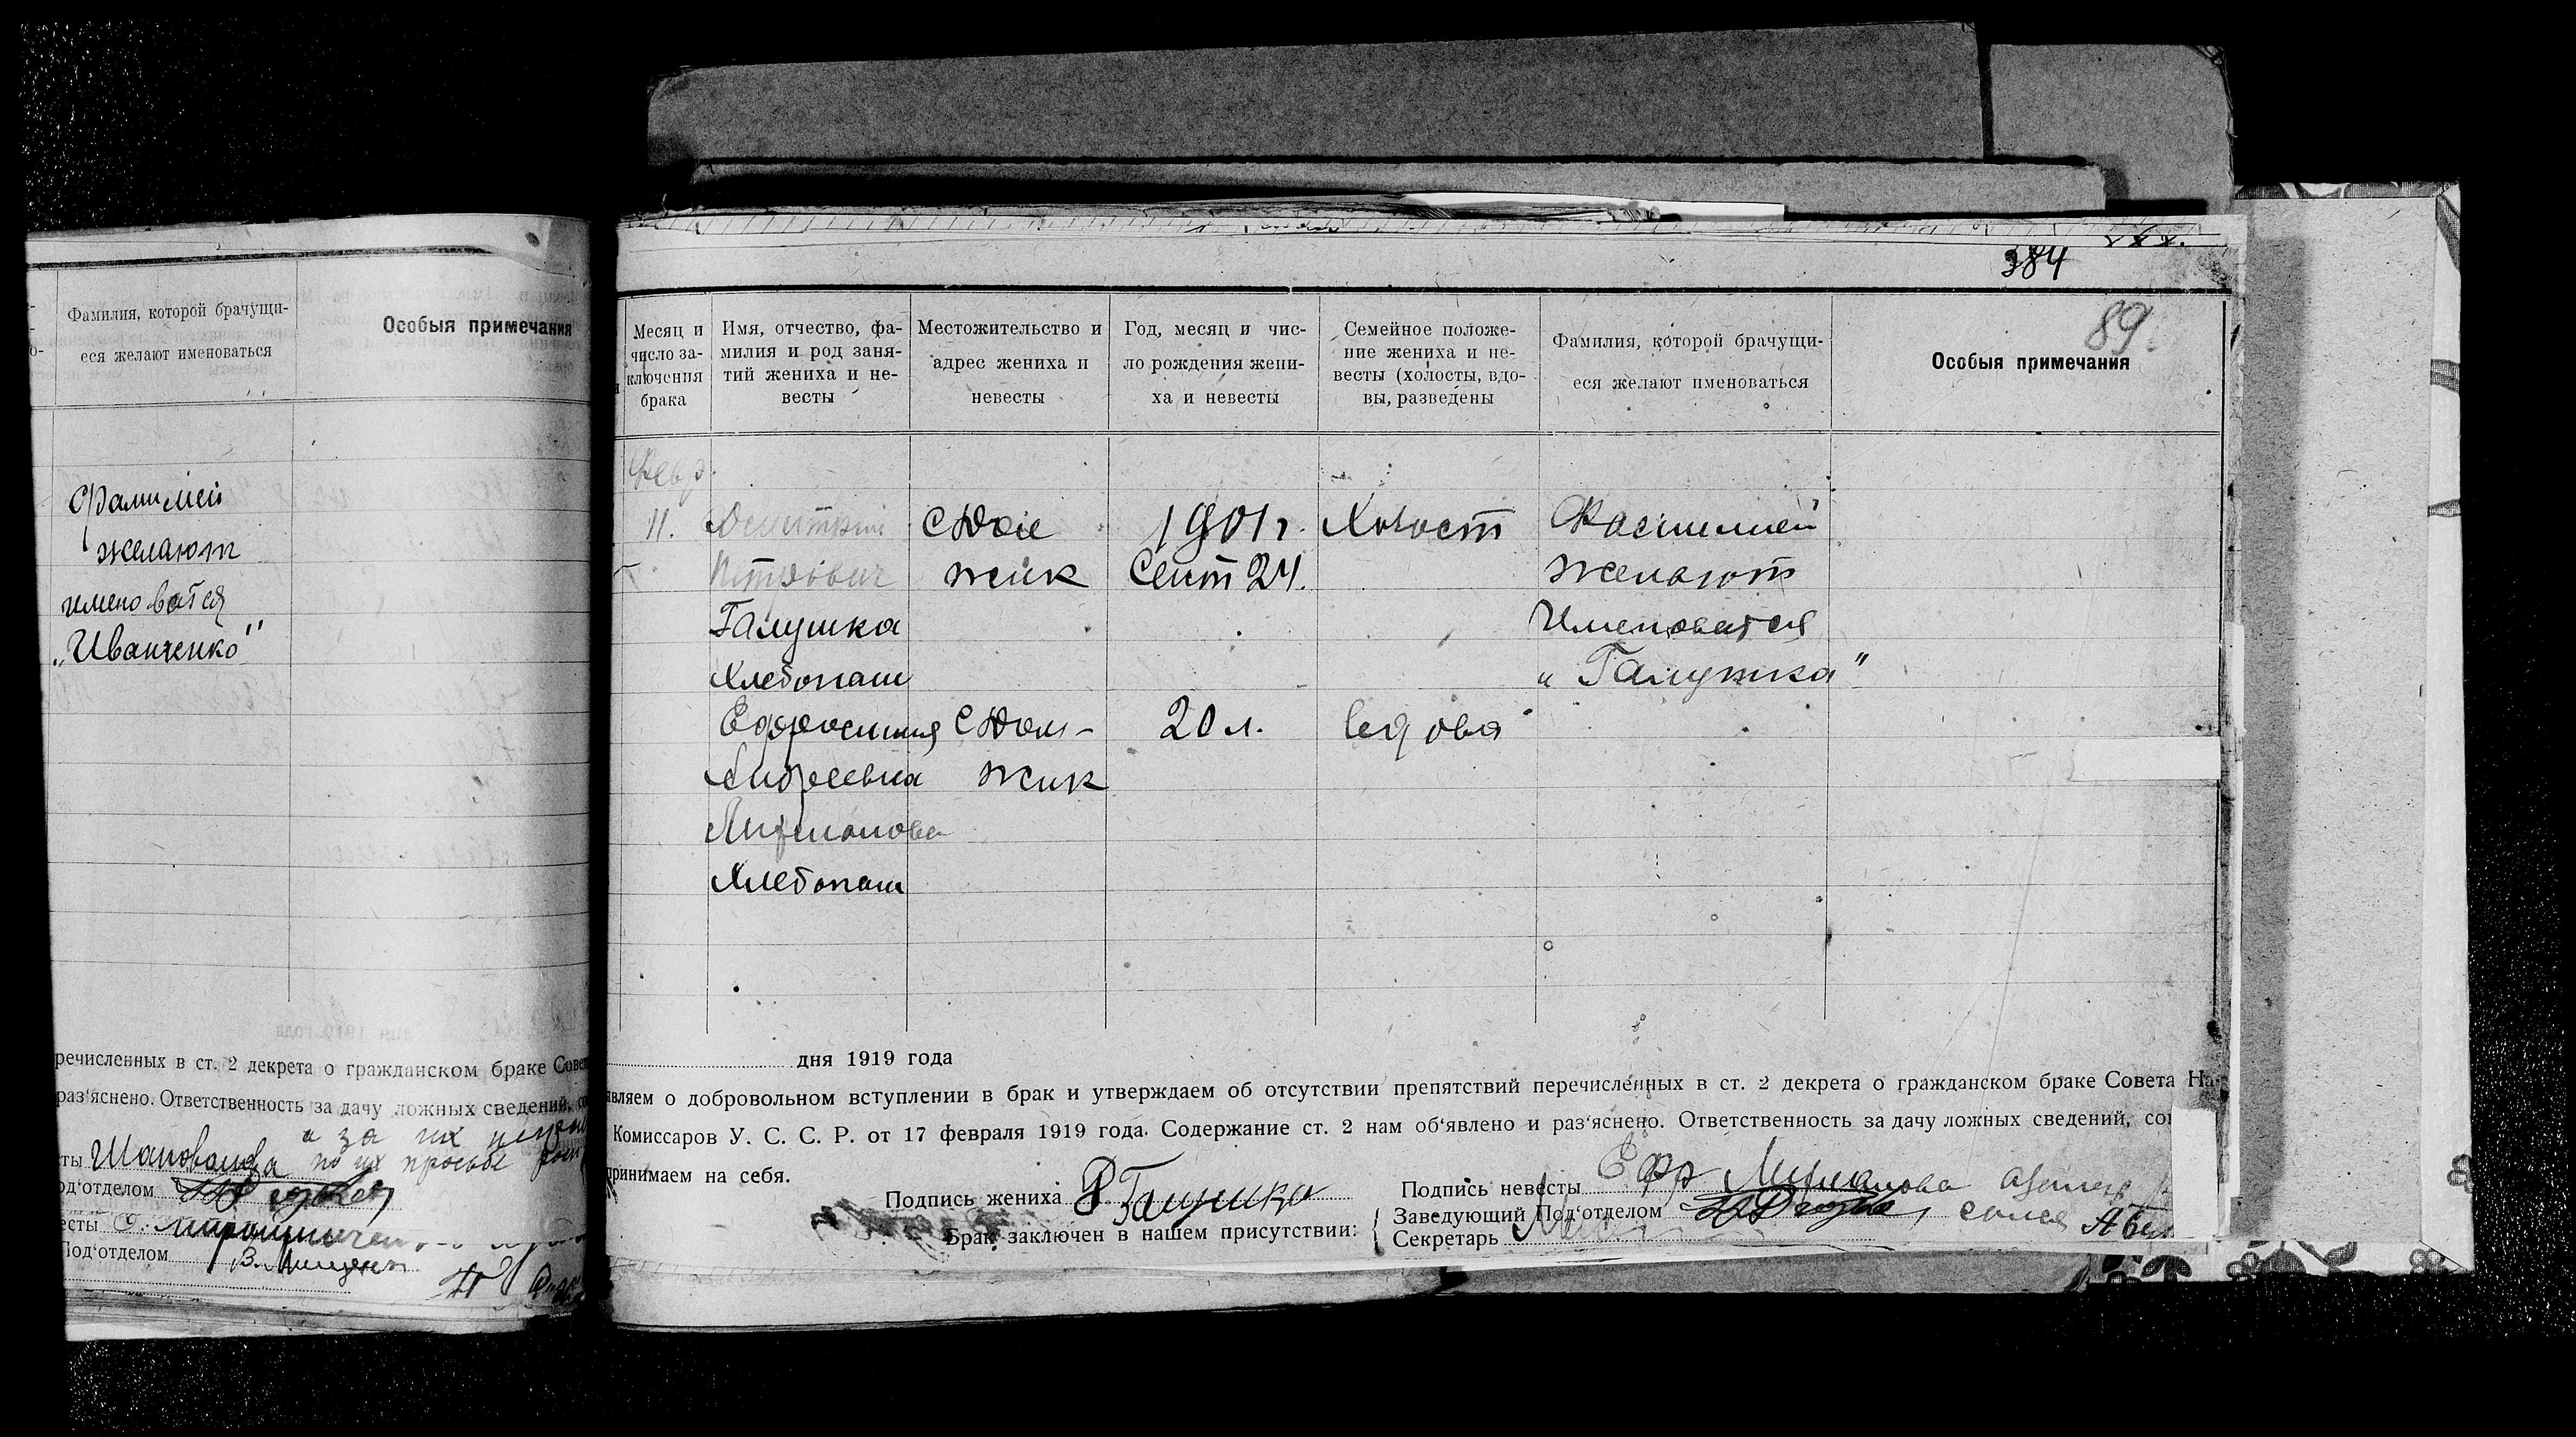 Фамилия, которой брачущи-
еся желают именоваться
Особыя примечания
Фамилией
желают
именоватся
„Иванченко"
речисленных в ст. 2 декрета о гражданском браке Сове
раз'яснено. Ответственность за дачу ложных сведений, со
а за их
ты Шаповалова по их просьбе
од'отделом
есты
Под'отделом
384
89
Месяц и
число за-
ключения
брака
Имя, отчество, фа-
милия и род заня-
тий жениха и не-
весты
Местожительство и
адрес жениха и
невесты
Год, месяц и чис-
ло рождения жени-
ха и невесты
Семейное положе-
ние жениха и не-
весты (холосты, вдо-
вы, разведены
Фамилия, которой брачущи-
еся желают именоваться
Особыя примечания
Февр.
11.
Дмитрий
Петрович
Галушка
Хлебопаш
Ефросиния
Андреевна
Хлебопаш
жик
жик
1901 г.
Сент 24.
20 л.
Холост
вдова
Фасмилией
желают
Именоватся
„Галушка"
дня 1919 года
являем о добровольном вступлении в брак и утверждаем об отсутствии препятствий перечисленных в ст. 2 декрета о гражданском браке Совета На-
Комиссаров У. С. С. Р. от 17 февраля 1919 года. Содержание ст. 2 нам об'явлено и раз'яснено. Ответственность за дачу ложных сведений, со
принимаем на себя.
Подпись жениха Галушка
Подпись невесты Ефр
Брак заключен в нашем присутствии:
Заведующий Под'отделом
Секретарь